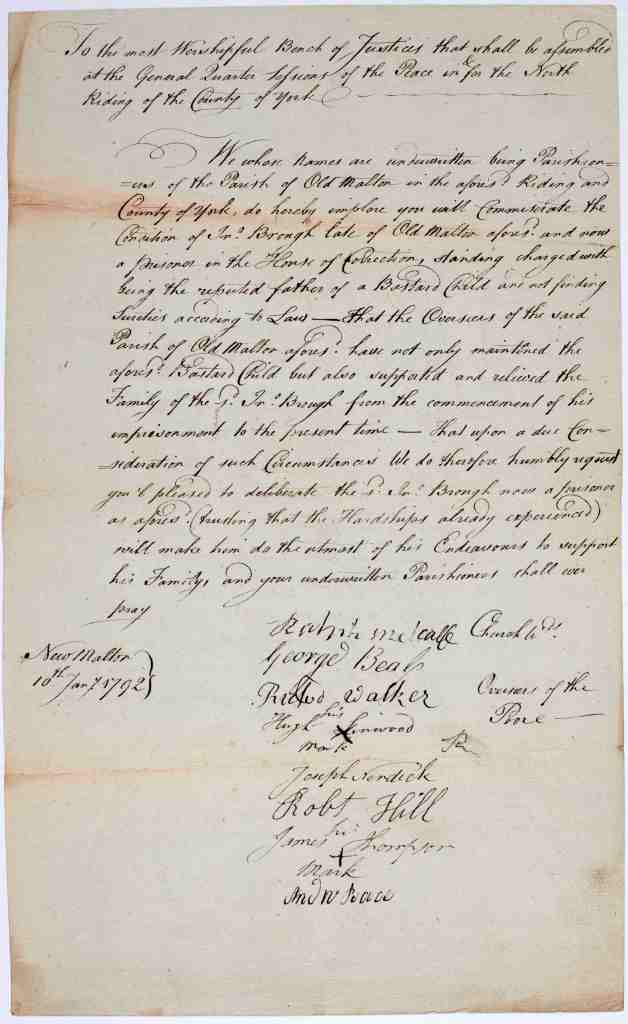 To the most Worshipful Bench of Justices that shall be assembled
at the General Quarter Sessions of the Peace in & for the North
Riding of the County of York
We whose names are underwritten being Parishion=
=ers of the Parish of Old Malton in the afores.d Riding and
County of York, do hereby implore you will Commiserate the
Condition of Jn.o Brough late of Old Malton afores.d and now
a prisoner in the House of Correction, standing charged with
being the reputed father of a Bastard Child and not finding
Sureties according to Law — that the Overseers of the said
Parish of Old Malton afores.d have not only maintined the
afores.d Bastard Child but also supported and relieved the
Family of the s.d Jn.o Brough from the commencement of his
imprisonment to the present time — that upon a due Con=
=sideration of such Circumstances We do therefore humbly request
you'l pleased to deliberate the s.d Jn.o Brough now a prisoner
as afores.d (trusting that the Hardships already experienced)
will make him do the utmost of his Endeavours to support
his Family, and your underwritten Parishioners shall ever
pray
Metcalfe Church Wds.
George Beal
New Malton
10th Jany 1792
Walker Overseers of the
Hugh his Poore —
mark
Joseph
Robt Hill
James his Thompson
Mark
Andw Race